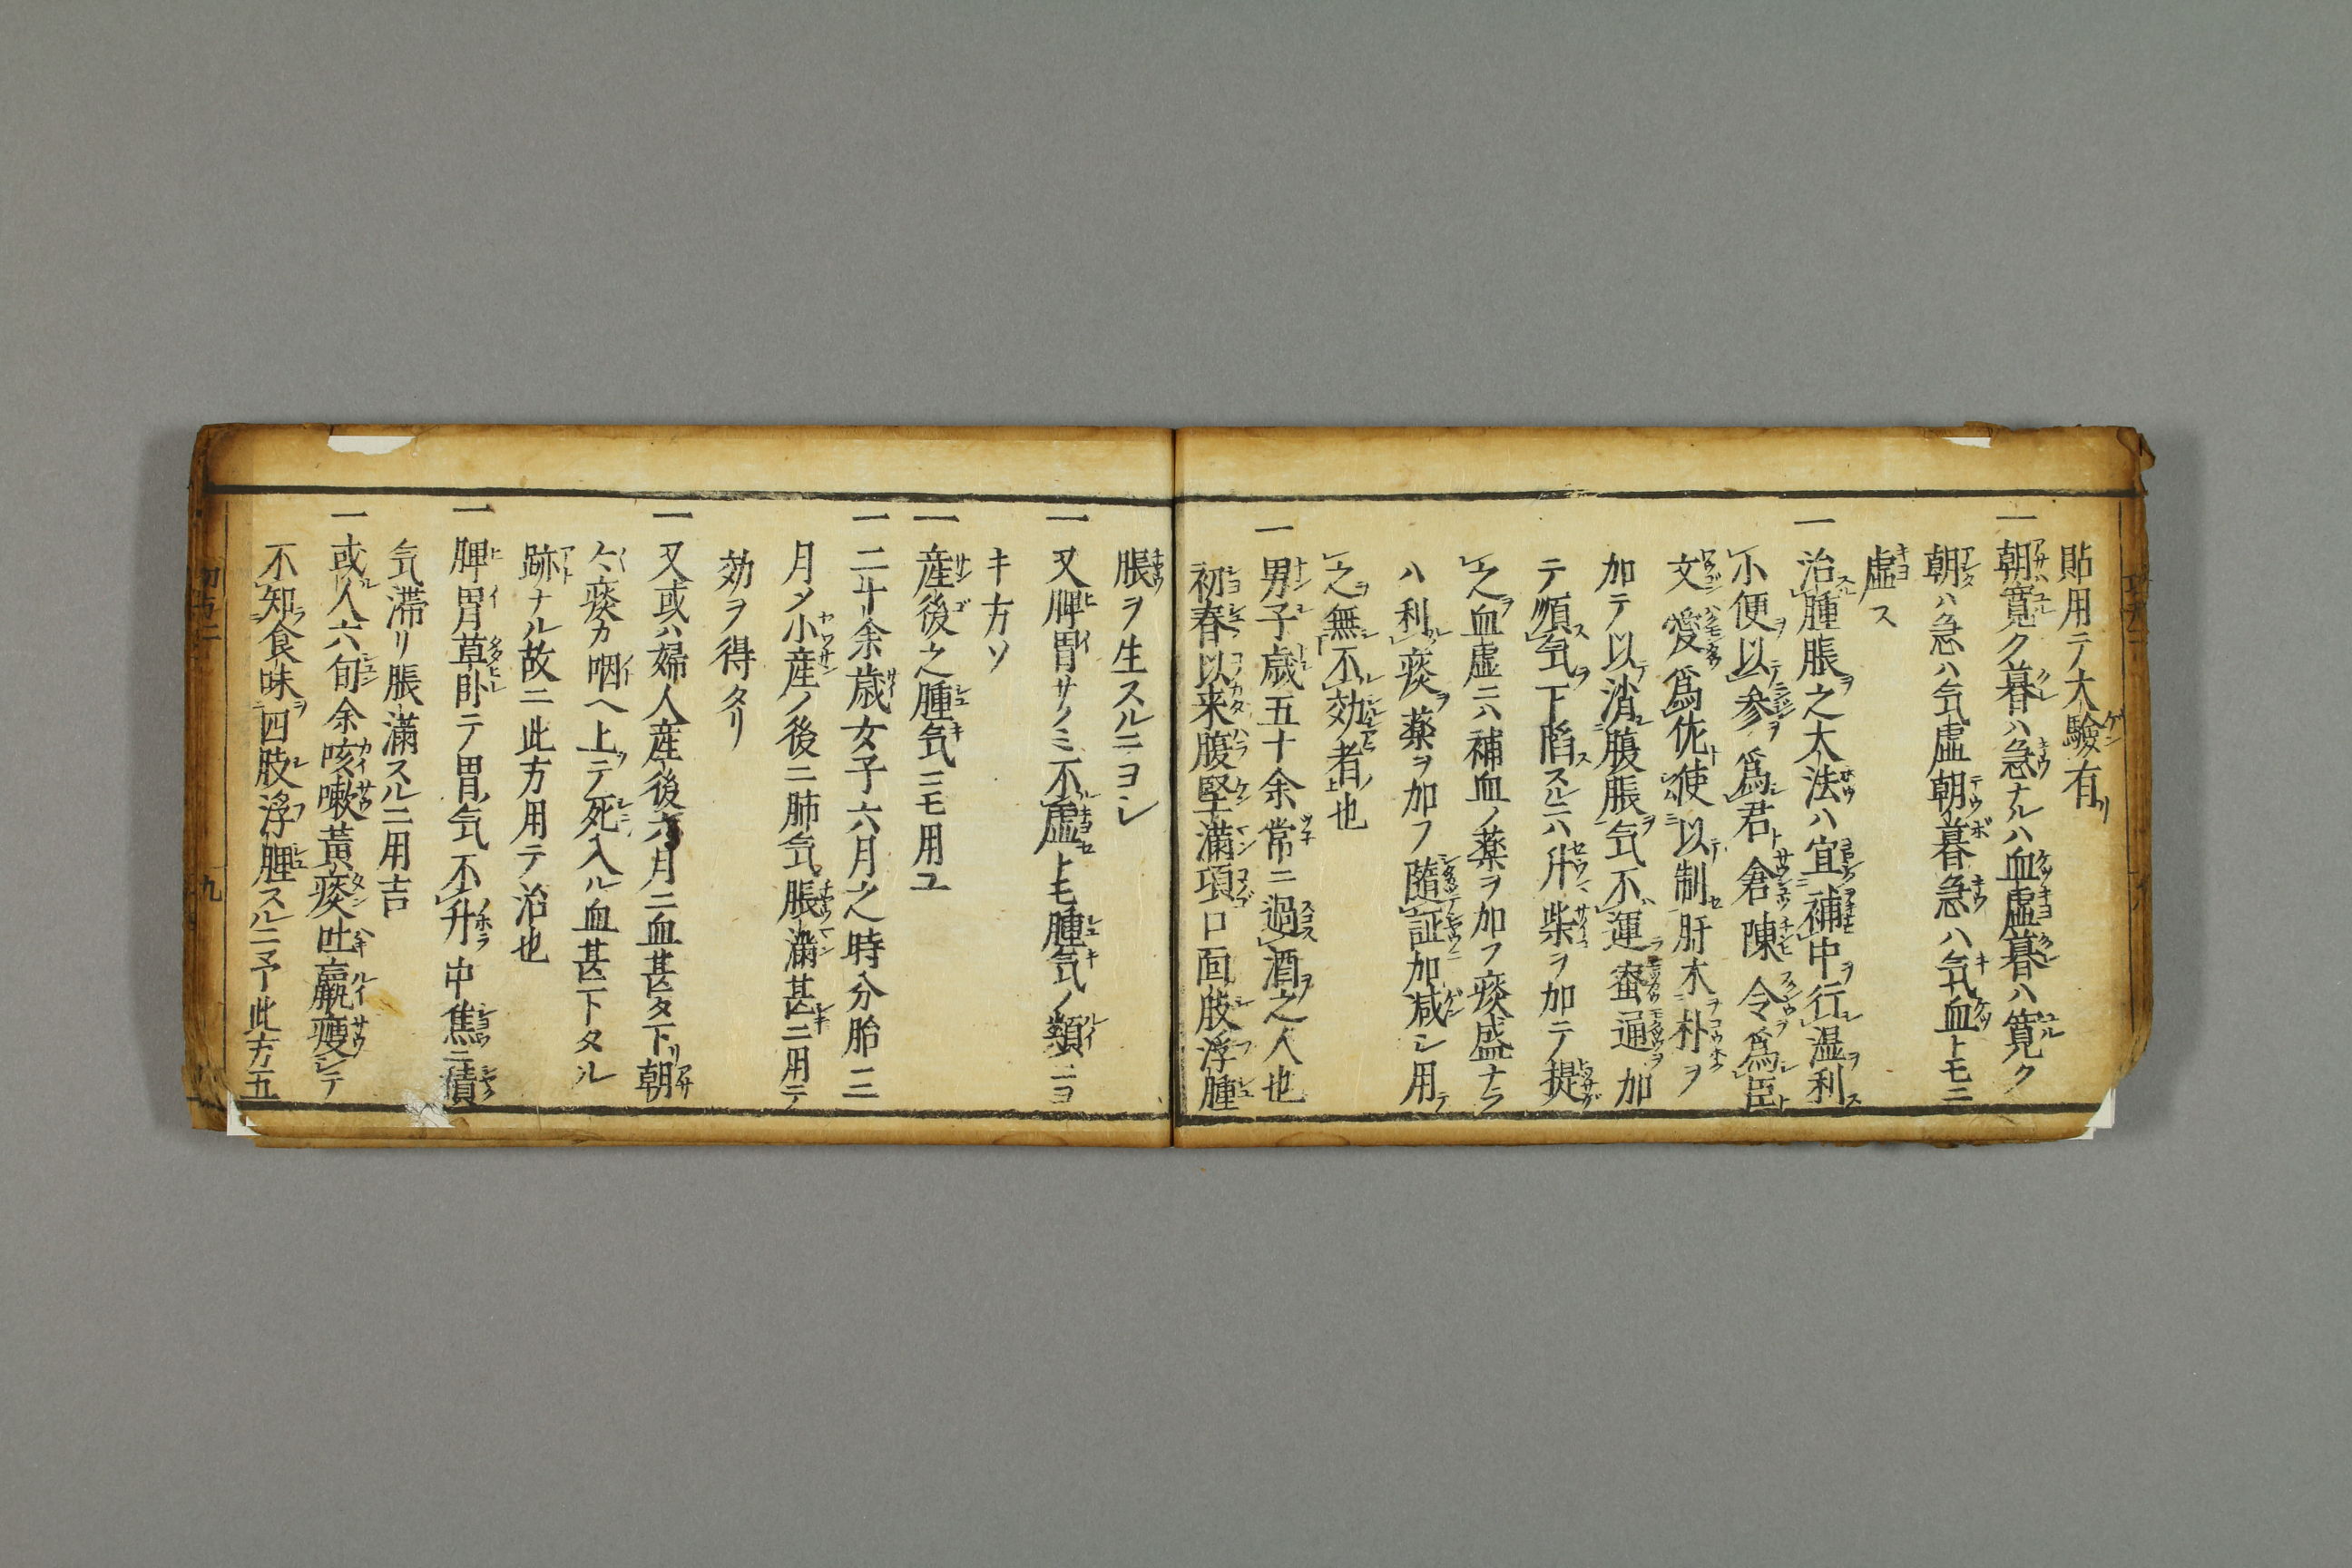 貼用テ大驗有リ
一朝寛ク暮ハ急ナルハ血虚暮ハ寛ク
朝ハ急ハ気虚朝暮急ハ気血トモニ
虚ス
一治腫脹之大法ハ宜補中ヲ行湿利
小便以参為君倉陳令為臣
文愛為佐使以制肝木朴ヲ
加テ以消腹脹気不運蚕通加
テ順気下陷スルニハ升柴ヲ加テ提
之血虚ニハ補血ノ薬ヲ加フ痰盛ナラ
ハ利痰薬ヲ加フ隨証加減シ用
之無不効者也
一男子歳五十余常ニ過酒之人也
初春以来腹堅満項口面肢浮腫
脹ヲ生スルニヨシ
一又脾胃サノミ不虚トモ腫気ノ類ニヨ
キ方ソ
一産後之腫気ニモ用ユ
一二十余歳女子六月之時分胎三
月メ小産ノ後ニ肺気脹満甚ニ用テ
効ヲ得タリ
一又或ハ婦人産後六月ニ血甚タ下リ朝
々痰カ咽ヘ上テ死入ル血甚下タル
跡ナル故ニ此方用テ治也
一脾胃草臥テ胃気不升中焦ニ積
気滞リ脹満スルニ用吉
一或人六旬余咳嗽黄痰吐羸痩シテ
不知食味四肢浮腫スルニ予此方五
九